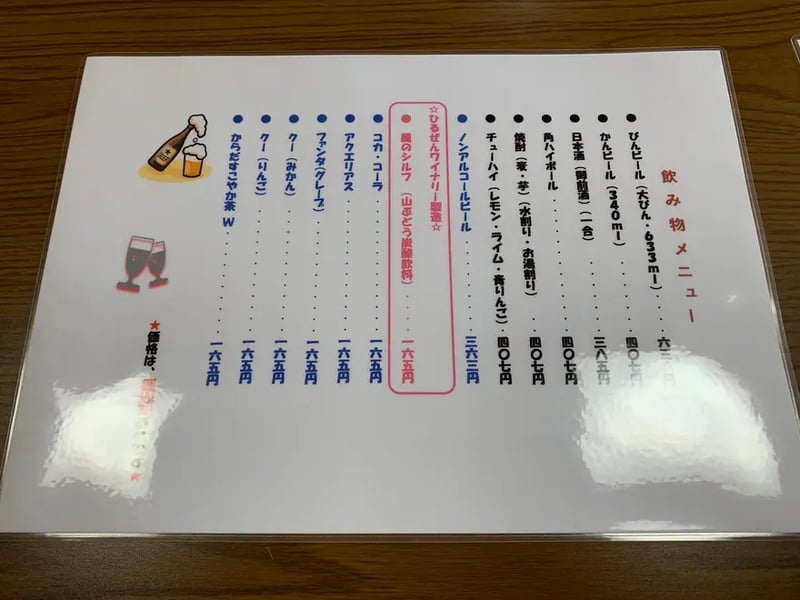 飲み物メニュー
● びんビール(大びん・633ml)・・・六三
● かんビール(340ml)・・・・・・四〇七円
● 日本酒(御前酒)(一合)・・・・・・三八五円
● 角ハイボール・・・・・・・・・・四〇七円
● 焼酎(麦・芋)(水割り・お湯割り)・・四〇七円
● チューハイ(レモン・ライム・青りんご)・四〇七円
● ノンアルコールビール・・・・・・・三六三円
☆ひるぜんワイナリー製造☆
● 風のシルフ (山ぶどう炭酸飲料)・・・・一六五円
● コカ・コーラ・・・・・・・・・・一六五円
● アクエリアス・・・・・・・・・・一六五円
● ファンタ(グレープ)・・・・・・・・一六五円
● クー(みかん)・・・・・・・・・・一六五円
● クー(りんご)・・・・・・・・・・一六五円
● からだすこやか茶W・・・・・・・・一六五円
★価格は、